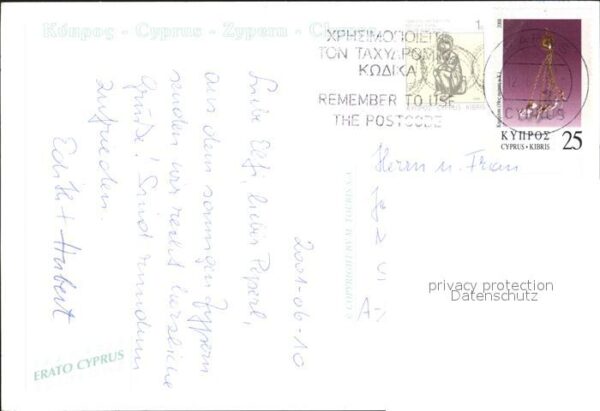 Κύπρος - Cyprus - Zypern - Chypre
ΧΡΗΣΙΜΟΠΟΙΕΙΤΕ
ΤΟΝ ΤΑΧΥΔΡΟΜ
ΚΩΔΙΚΑ
REMEMBER TO USE
THE POSTCODE
1
CYPRUS KIBRIS
2000
CYPRUS
ΚΥΠΡΟΣ
CYPRUS • KIBRIS
25
2001-06-10
Liebe Elfi, lieber Peperl,
aus dem sonnigen Zypern
senden wir recht herzliche
Grüße! Sind rundum
zufrieden.
Edith + Hubert
Herrn u. Frau
privacy protection
Datenschutz
ERATO CYPRUS